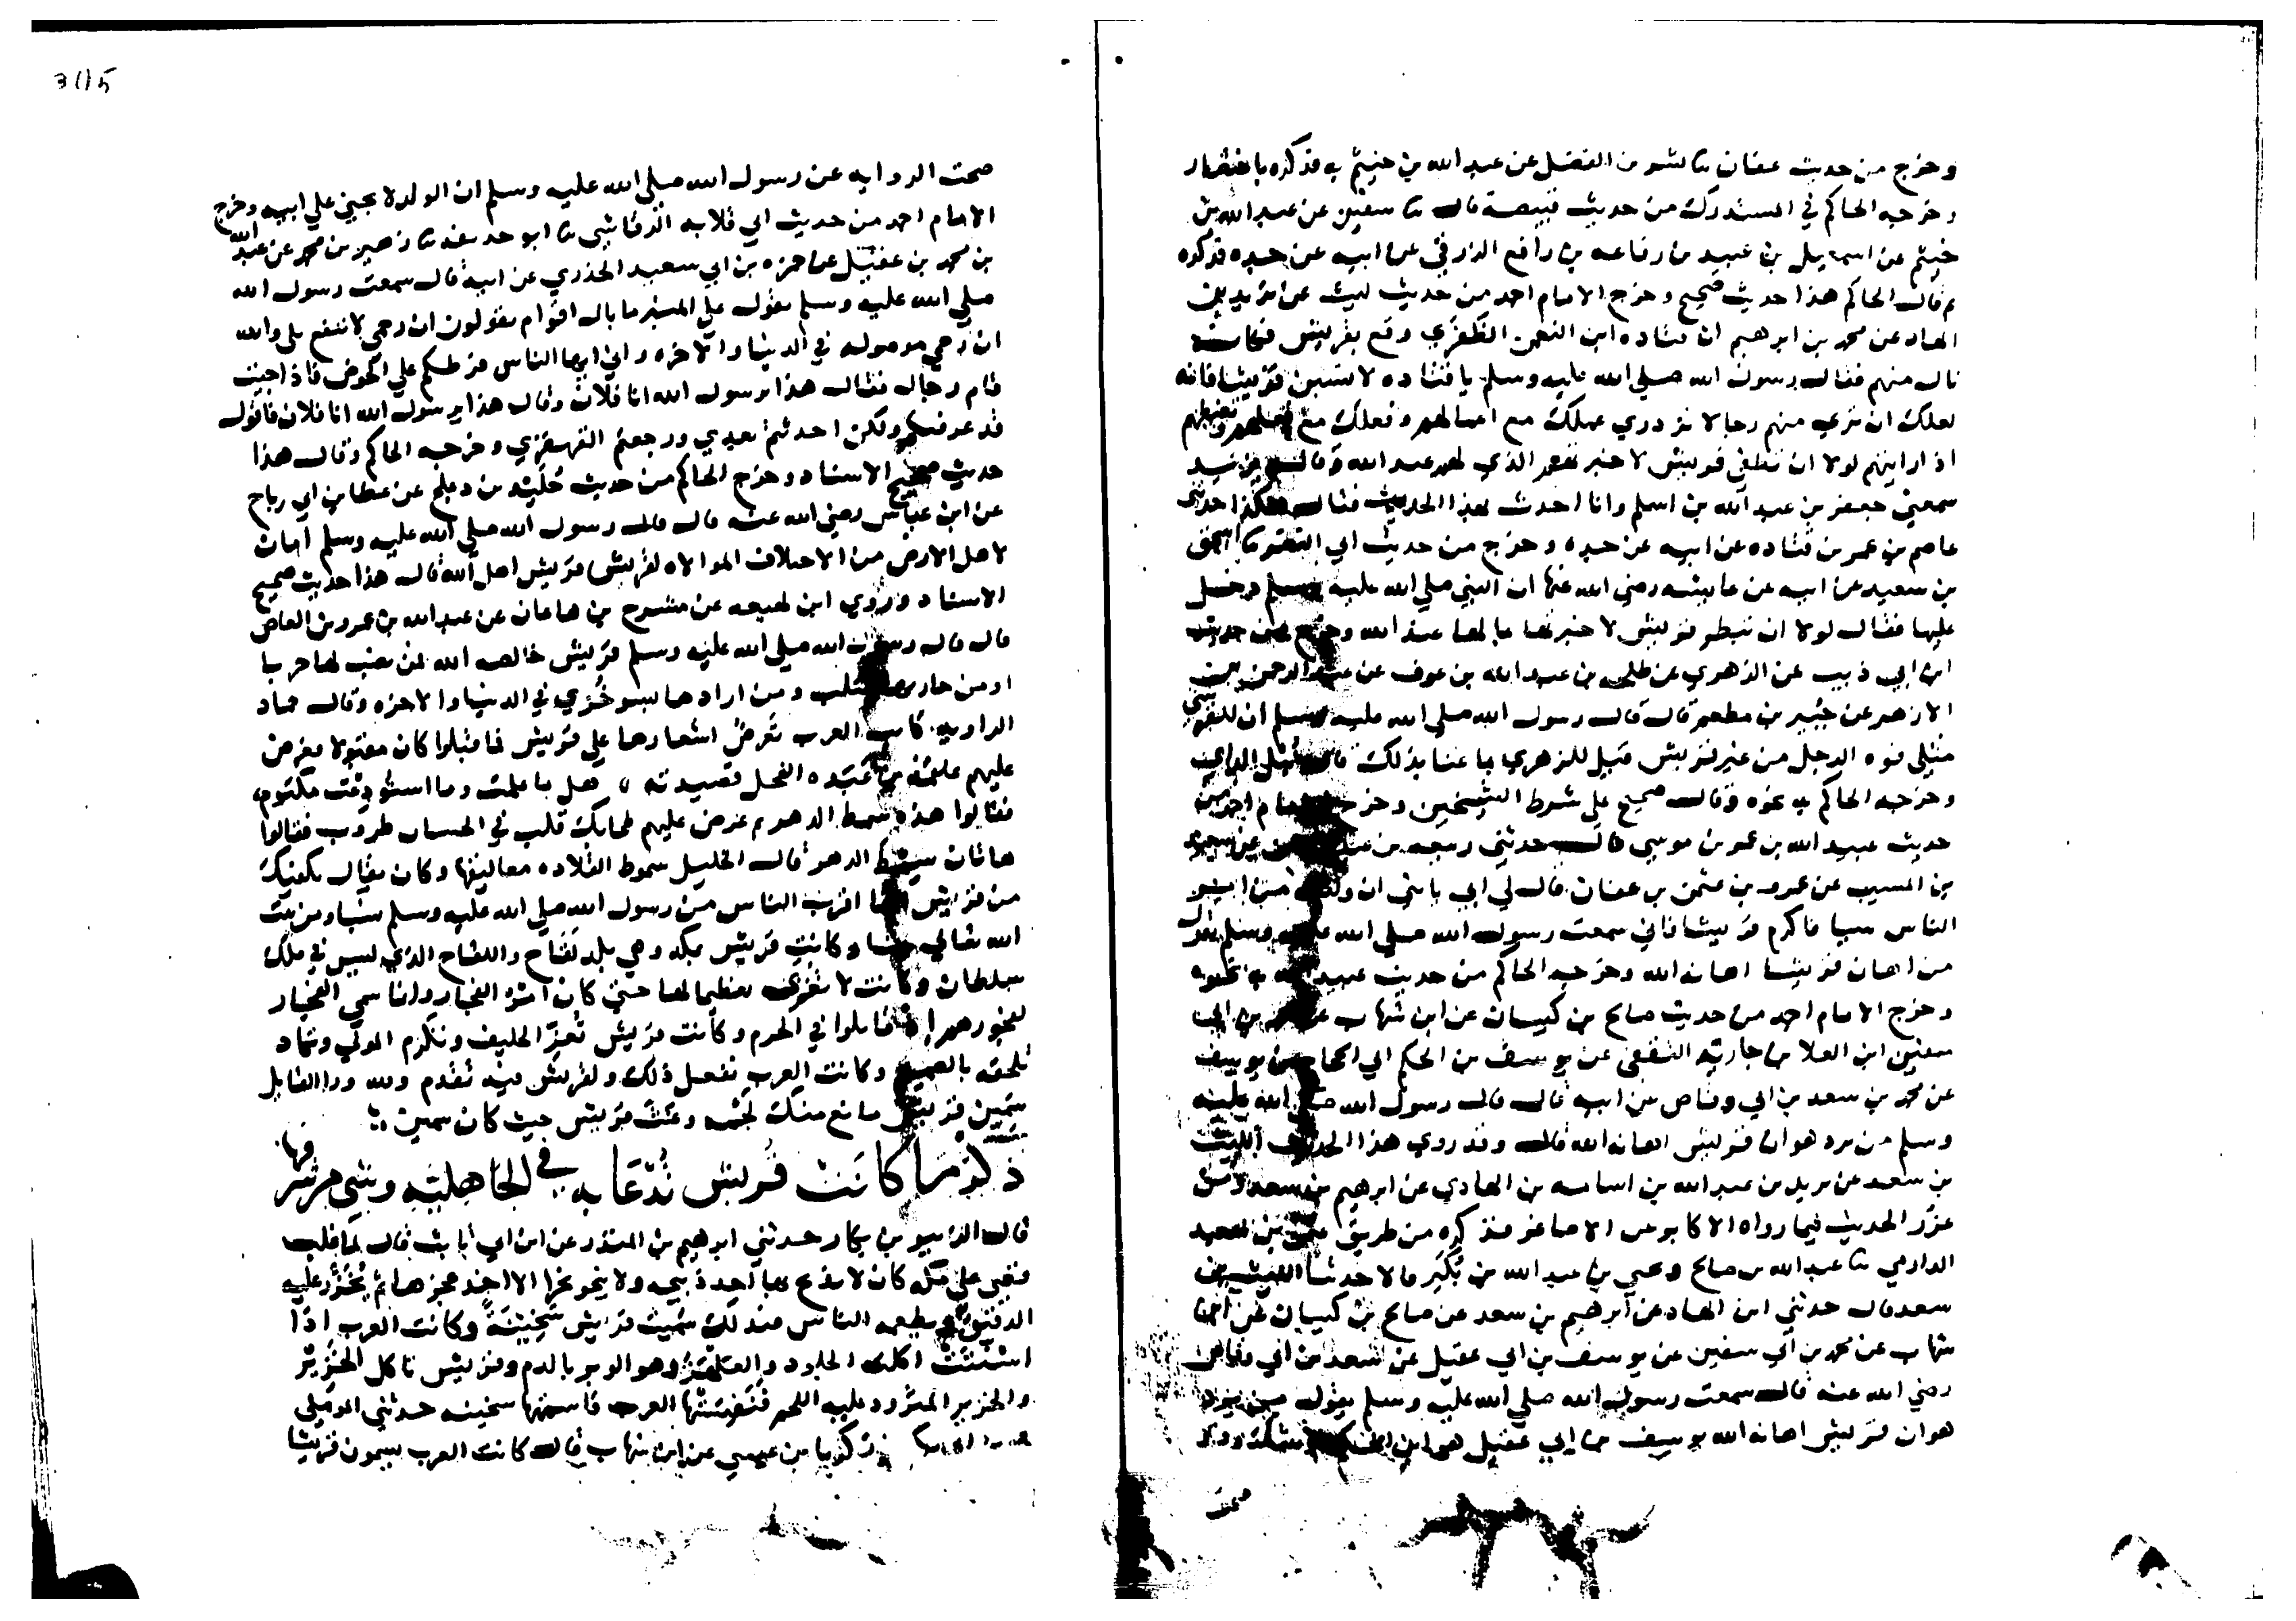 وخرج من حديث عفان ثنا بشر بن الفضل عن عبد الله بن خثيم به فذكره باختصار
وخرجه الحاكم في المستدرك من حديث قبيصة قال ثنا سفين عن عبد الله بن
خثيم عن اسمعيل بن عبيد بن رفاعه بن رافع الزرقي عن ابيه عن جده فذكره
ثم قال الحاكم هذا حديث صحيح وخرج الامام احمد من حديث ليث عن يزيد بن
الهاد عن محمد بن ابرهيم ان قتاده ابن النعمن الظفري وقع بقريش فكانه
نال منهم فقال رسول الله صلى الله عليه وسلم يا قتاده لا تسبن قريشا فانه
لعلك ان تري منهم رجالا تزدري عملك مع اعمالهم وفعلك مع افعالهم وتغبطهم
اذا رايتهم لولا ان تطغى قريش لاخبرتهم الذي لهم عند الله وقال يزيد
سمعني جعفر بن عبد الله بن اسلم وانا احدث بهذا الحديث فقال هكذا حدثني
عاصم بن عمر بن قتاده عن ابيه عن جده وخرج من حديث ابي النضر ثنا اسحق
بن سعيد عن ابيه عن عايشه رضي الله عنها ان النبي صلى الله عليه وسلم دخل
عليها فقال لولا ان تبطر قريش لاخبرتها بما لها عند الله وخرج من حديث
ابن ابي ذيب عن الزهري عن طلحه بن عبد الله بن عوف عن عبد الرحمن بن
الازهر عن جبير بن مطعم قال قال رسول الله صلى الله عليه وسلم ان للقرشي
مثلي قوه الرجل من غير قريش قيل للزهري ما عنا بذلك قال نبل الراي
وخرجه الحاكم به نحوه وقال صحيح على شرط الشيخين وخرج الامام احمد من
حديث عبيد الله بن عمر بن موسى قال حدثني ربيعه بن عبد الرحمن عن سعيد
بن المسيب عن عمرو بن عثمن بن عفان قال لي ابي يا بني ان وليت من امر
الناس شيا فاكرم قريشا فاني سمعت رسول الله صلى الله عليه وسلم يقول
من اهان قريشا اهانه الله وخرجه الحاكم من حديث عبيد الله به نحوه
وخرج الامام احمد من حديث صالح بن كيسان عن ابن شهاب عن محمد بن ابي
سفين ابن العلا بن جاريه الثقفي عن يوسف بن الحكم ابي الحجاج بن يوسف
عن محمد بن سعد بن ابي وقاص عن ابيه قال قال رسول الله صلى الله عليه
وسلم من يرد هوان قريش اهانه الله قال وقد روي هذا الحديث الليث
بن سعد عن يزيد بن عبد الله بن اسامه بن الهادي عن ابرهيم بن سعد ومن
عزز الحديث فيما رواه الاكابر عن الاصاغر فذكره من طريق عثمن بن سعيد
الدارمي ثنا عبد الله بن صالح ويحيى بن عبد الله بن بكير قالا حدثنا الليث بن
سعد قال حدثني ابن الهاد عن ابرهيم بن سعد عن صالح بن كيسان عن ابن
شهاب عن محمد بن ابي سفين عن يوسف بن ابي عقيل عن سعد بن ابي وقاص
رضي الله عنه قال سمعت رسول الله صلى الله عليه وسلم يقول من يرد
هوان قريش اهانه الله يوسف بن ابي عقيل هو ابن الحكم
صحت
3015
صحت الروايه عن رسول الله صلى الله عليه وسلم ان الولد لا يجني علي ابيه وخرج
الامام احمد من حديث ابي قلابه الرقاشي ثنا ابو حذيفه ثنا زهير بن محمد عن عبد الله
بن محمد بن عقيل عن حمزه بن ابي سعيد الخدري عن ابيه قال سمعت رسول الله
صلى الله عليه وسلم يقول على المنبر ما بال اقوام يقولون ان رحمي لا تنفع بلى والله
ان رحمي موصوله في الدنيا والاخره واني ايها الناس فرطكم على الحوض فاذا جيت
قام رجال فقال هذا يرسول الله انا فلان وقال هذا يرسول الله انا فلان فاقول
قد عرفتكم ولكن احدثتم بعدي ورجعتم القهقري وخرجه الحاكم وقال هذا
حديث صحيح الاسناد وخرج الحاكم من حديث خليد بن دعلج عن عطا بن ابي رباح
عن ابن عباس رضي الله عنه قال قال رسول الله صلى الله عليه وسلم امان
لاهل الارض من الاختلاف الموالاه لقريش قريش اهل الله قال هذا حديث صحيح
الاسناد وروي ابن لهيعه عن مشرح بن هاعان عن عبد الله بن عمرو بن العاص
قال قال رسول الله صلى الله عليه وسلم قريش خالصه الله فمن نصب لها حربا
او من حاربها سلب ومن ارادها بسو خزي في الدنيا والاخره وقال حماد
الراويه كانت العرب تعرض اشعارها على قريش فما قبلوا كان مقبولا فعرض
عليهم علقمة بن عبده الفحل قصيدته هل ما علمت وما استودعت مكتوم
فقالوا هذه سمط الدهر ثم عرض عليهم طحابك قلب في الحسان طروب فقالوا
هاتان سمط الدهر قال الخليل سموط القلاده معاليقها وكان يقال يكفيك
من قريش انها اقرب الناس من رسول الله صلى الله عليه وسلم نسبا ومن بيت
الله تعالي بيتا وكانت قريش بمكه وهي بلد لقاح واللقاح الذي ليس في ملك
سلطان وكانت لا تغزى تعظيما لها حتى كان امر الفجار وانما سمي الفجار
لفجورهم اذ قاتلوا في الحرم وكانت قريش تعز الحليف وتكرم المولي وتكاد
تلحقه بالصميم وكانت العرب تفعل ذلك ولقريش فيه تقدم ولله در القايل
سمين قريش مانع منك لحمه وغث قريش حيث كان سمين
ذكر ما كانت قريش تدعا به في الجاهلية وشي من ماثرها
قال الزبير بن بكار حدثني ابرهيم بن المنذر عن ابن ابي ثابت قال لما غلب
قصي على مكه كان لا يذبح بها احد ذبيحه ولا ينحر نحرا الا اخذ عجزها ثم يخزر عليه
الدقيق ويطعمه الناس فبذلك سميت قريش سخينة وكانت العرب اذا
اسنتت اكلت الجلود والعلهز وهو الوبر بالدم وقريش تاكل الخزير
والخزير المثرود عليه اللحم فنفستها العرب فاسمتها سخينه حدثني الموصلي
زكريا بن عيسى عن ابن شهاب قال كانت العرب يسمون قريشا